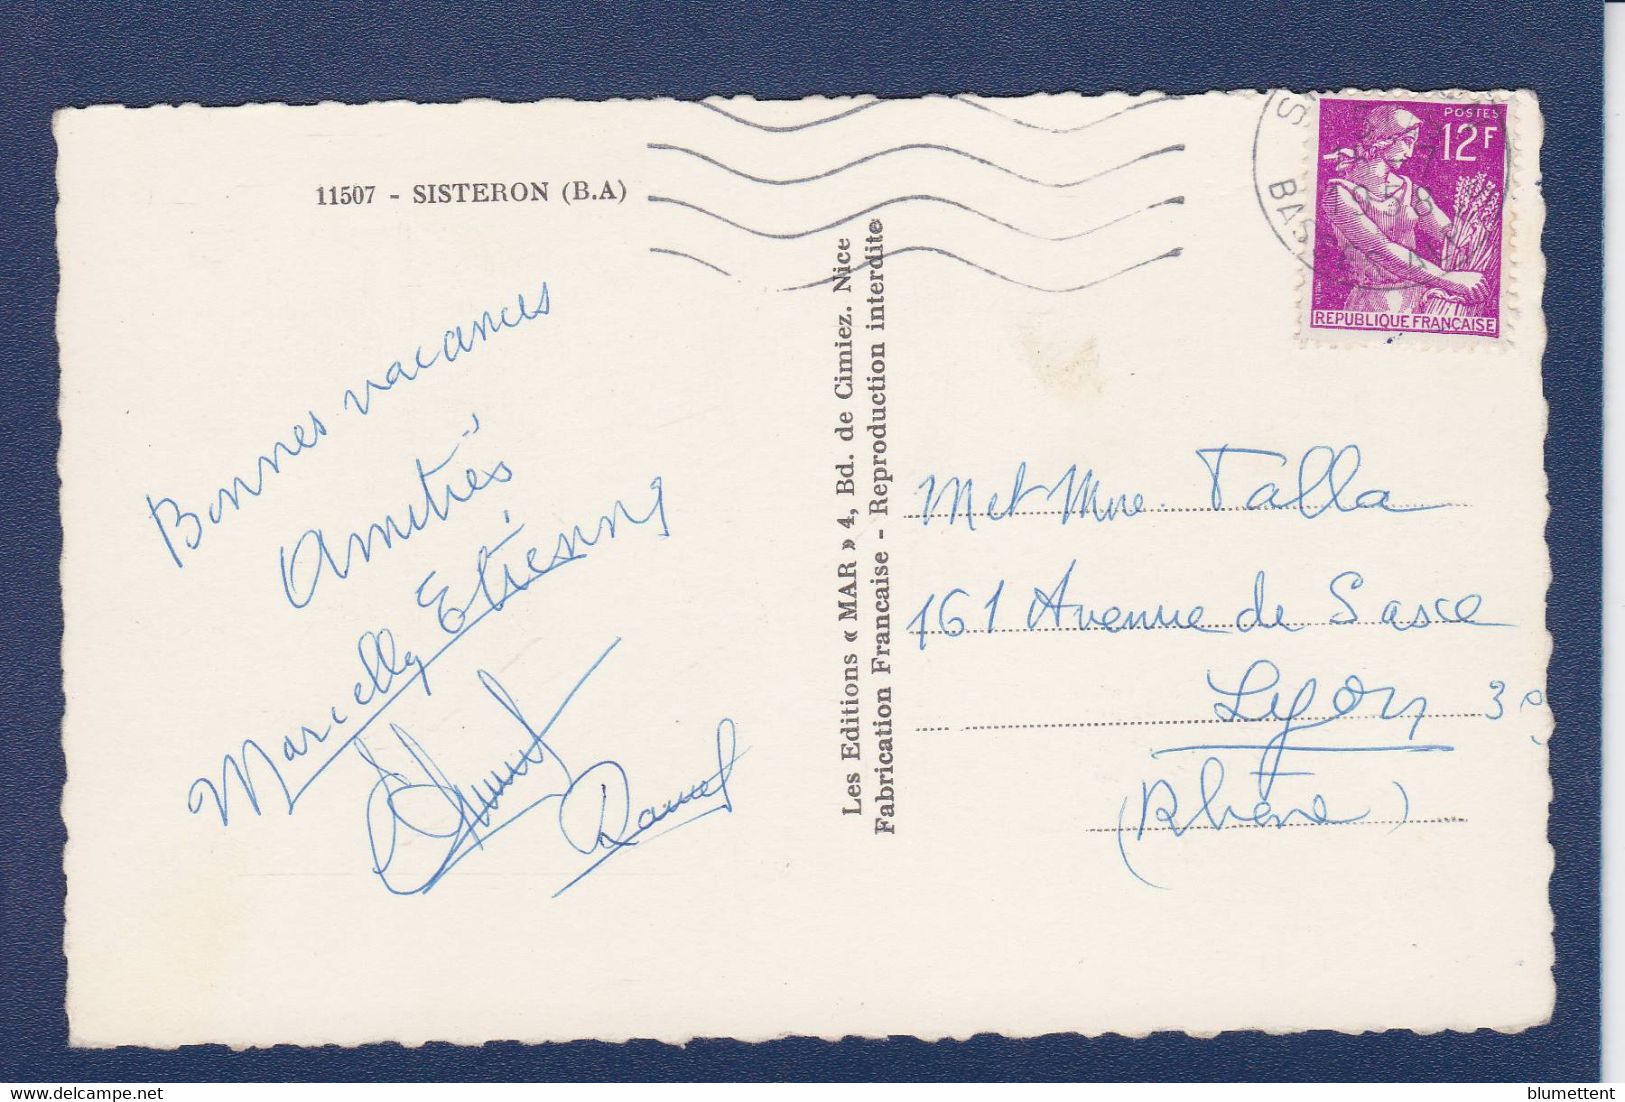 11507 - SISTERON (B.A)
Bonnes vacances
Amitiés
Marcelly Etienne
Les Editions « MAR » 4, Bd. de Cimiez. Nice
Fabrication Francaise - Reproduction interdite
POSTES
12F
REPUBLIQUE FRANÇAISE
1958
M et Mme. Talla
161 Avenue de Saxe
Lyon 3e
(Rhône)
blumettent